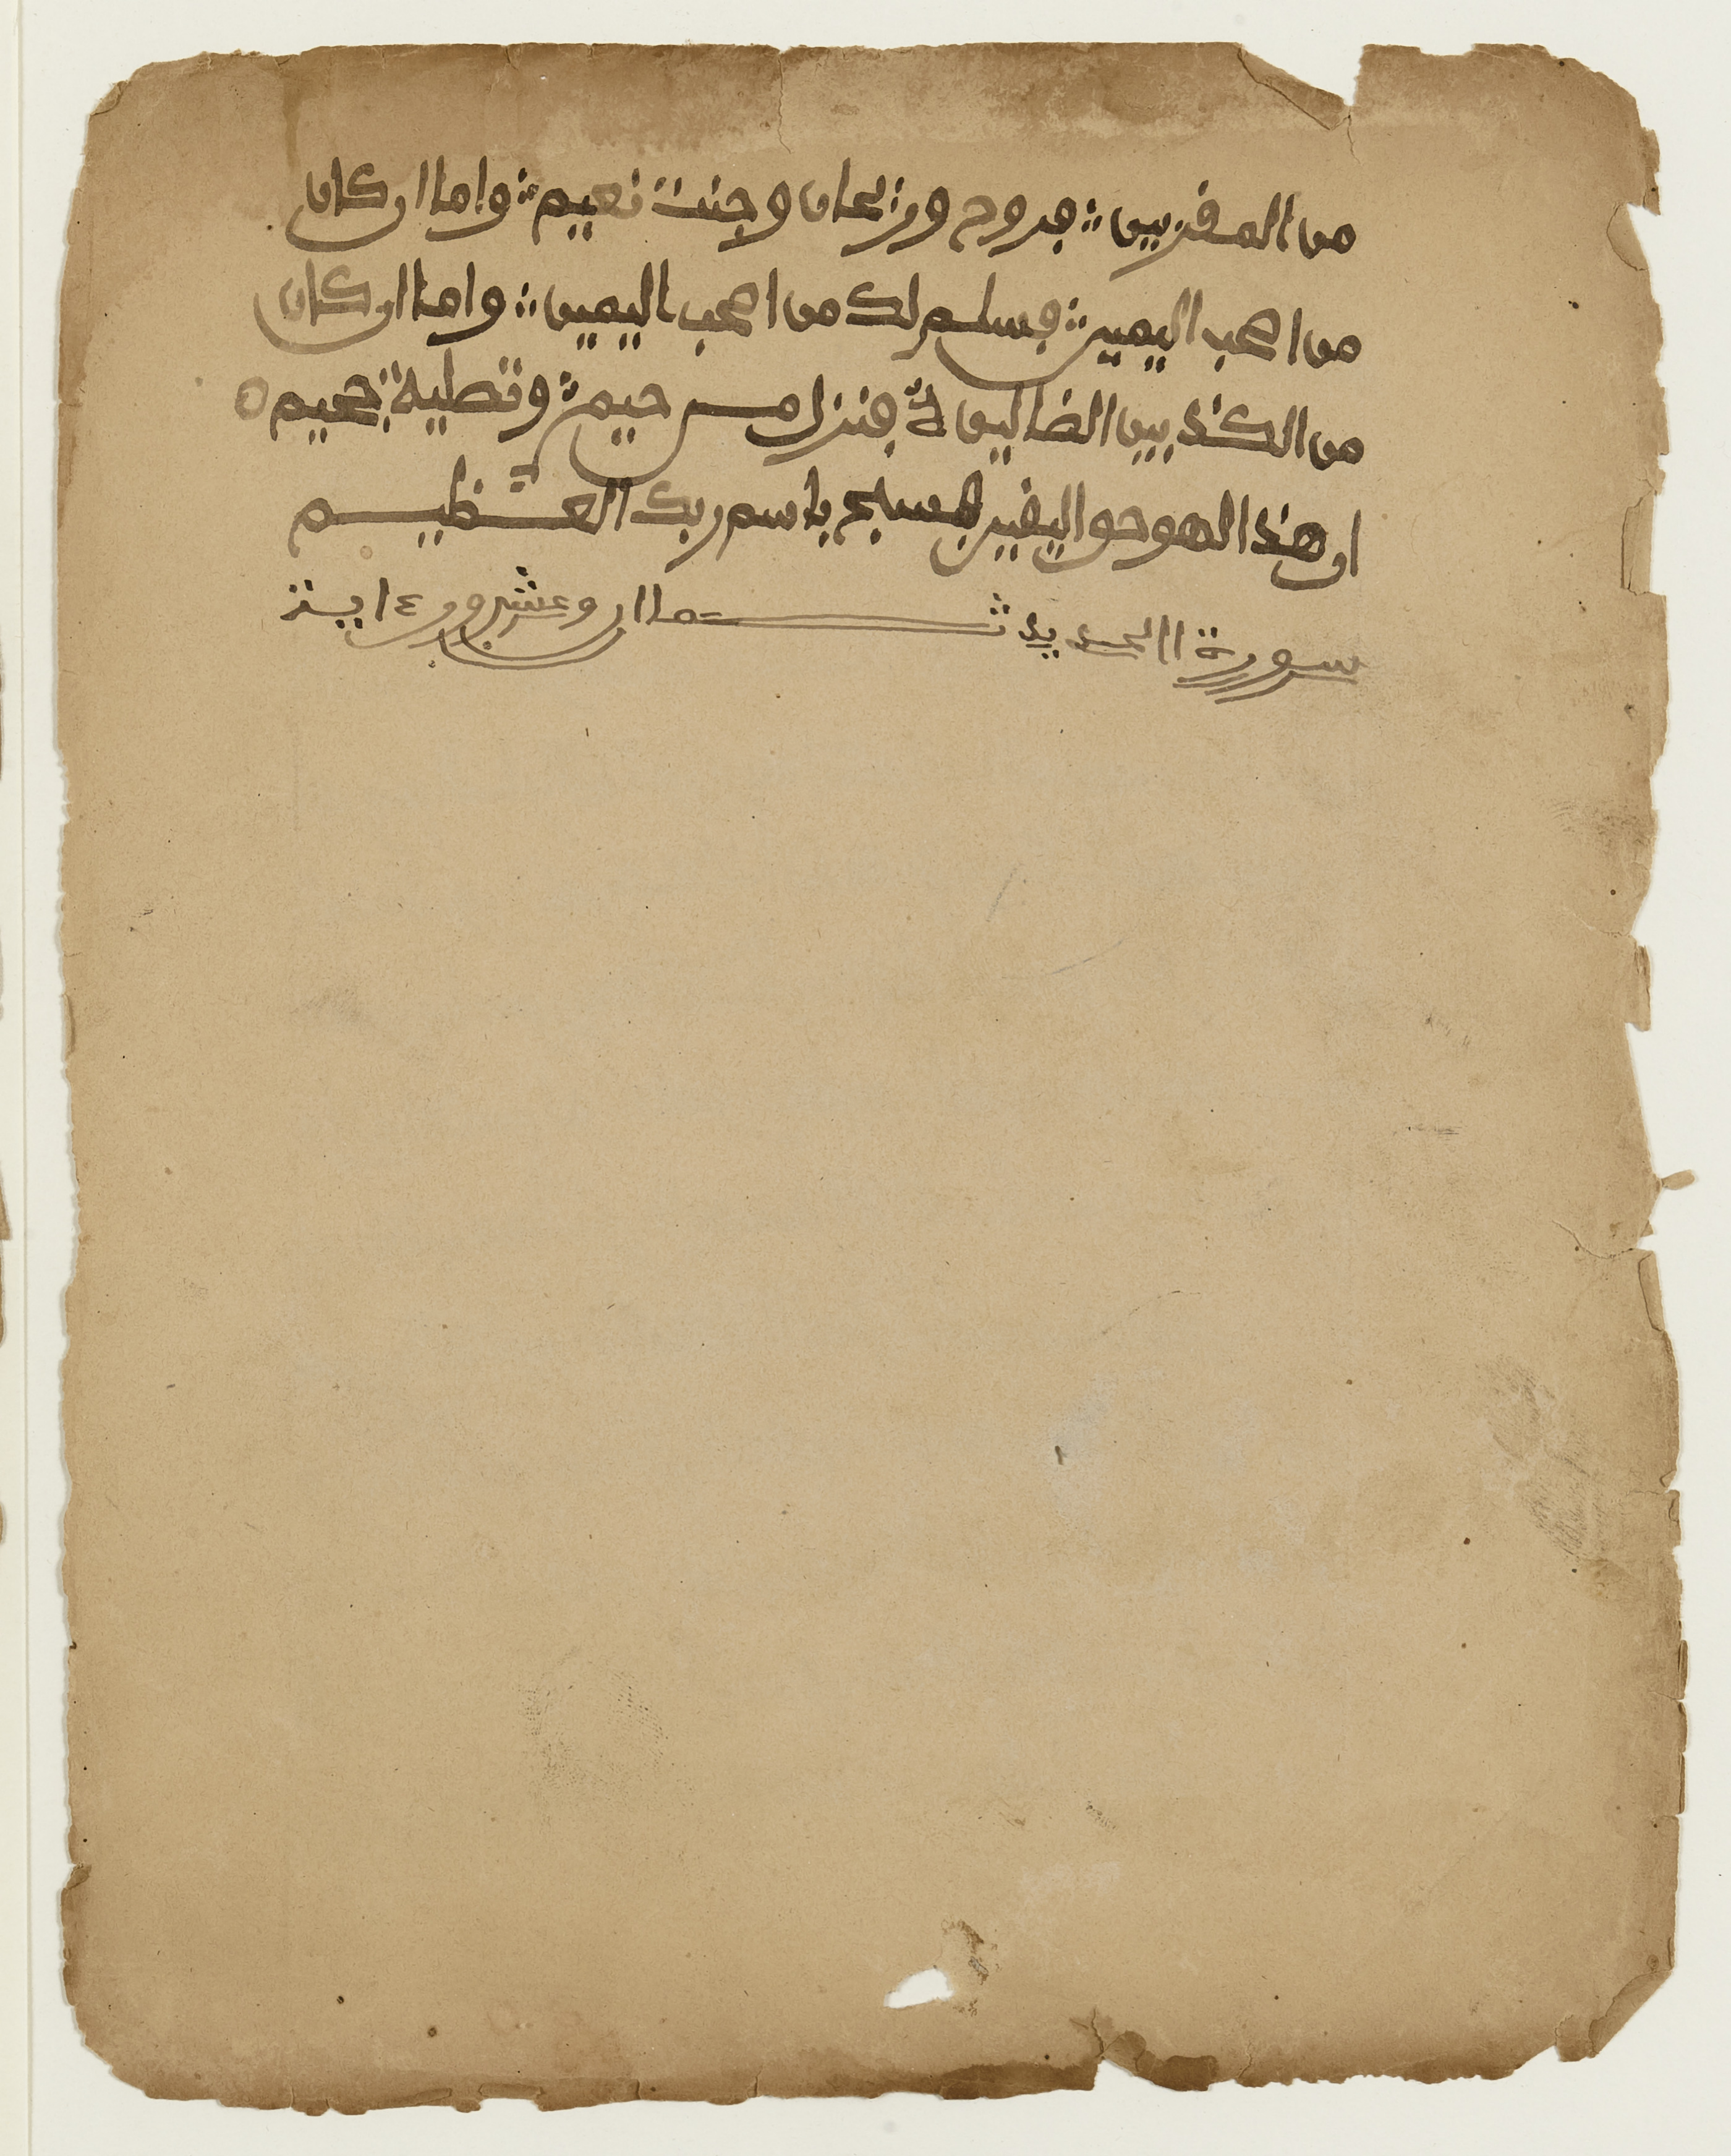 من المقربين ∴ فروح وريحان وجنت نعيم ∴ واما ان كان
من اصحب اليمين ∴ فسلم لك من اصحب اليمين ∴ واما ان كان
من المكذبين الضالين ∴ فنزل من حميم ∴ وتصلية جحيم
ان هذا لهو حق اليقين فسبح باسم ربك العظيم
سورة الحديد ثمان وعشرون ءاية